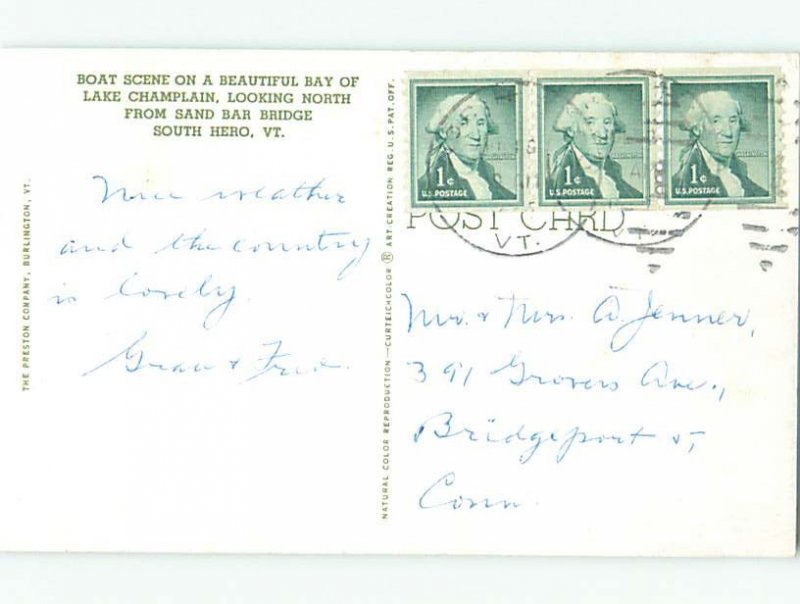 BOAT SCENE ON A BEAUTIFUL BAY OF
LAKE CHAMPLAIN, LOOKING NORTH
FROM SAND BAR BRIDGE
SOUTH HERO, VT.
Nice weather
and the country
is lovely.
& Fred.
THE PRESTON COMPANY, BURLINGTON, VT.
NATURAL COLOR REPRODUCTION—CURTEICHCOLOR ® ART CREATION REG. U.S. PAT. OFF.
1¢
U.S. POSTAGE
1¢
U.S. POSTAGE
1¢
U.S. POSTAGE
POST CARD
VT.
VT.
Mr. & Mrs. A. Jenner,
391 Grovers Ave.,
Bridgeport 5,
Conn.